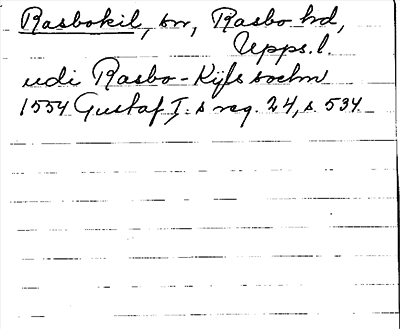 Rasbokil, sn, Rasbo hd,
Upps. l.
udi Rasbo-Kijls sochn
1554 Gustaf I:s reg. 24, s. 534